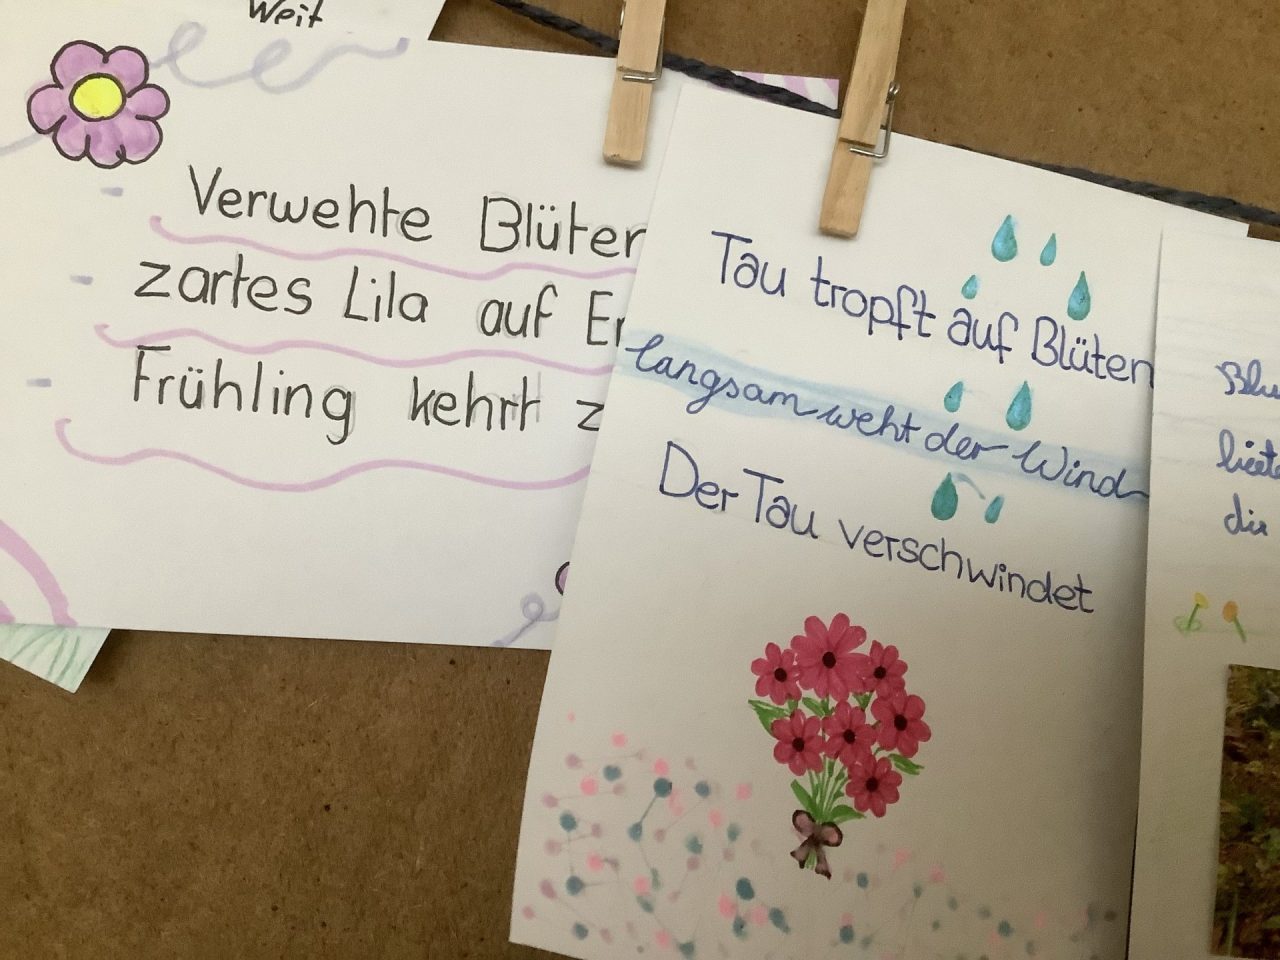 Weit
Verwehte Blüten
zartes Lila auf
Frühling kehrt
Tau tropft auf Blüten
langsam weht der Wind
Der Tau verschwindet
die